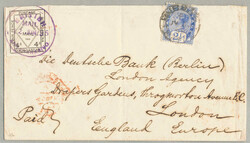 MAIL
Die Deutsche Bank (Berlin)
London Agency
Drapers Gardens, Throgmorton Avenue E.C.
London
Paid
England Europe